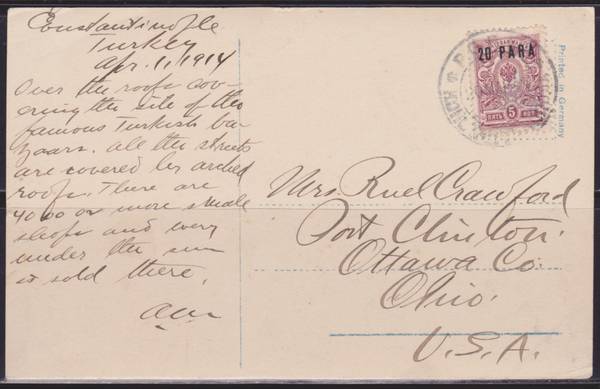 Constantinople
Turkey
Apr. 11, 1914
Over the roofs cov-
ering the site of the
famous Turkish ba-
zaars. All the streets
are covered by arched
roofs. There are
4000 or more small
shops and every
under the sun
is sold there.
20 PARA
5
Printed in Germany
Mrs. Ruel Crawford
Port Clinton.
Ottawa Co.
Ohio.
U.S.A.